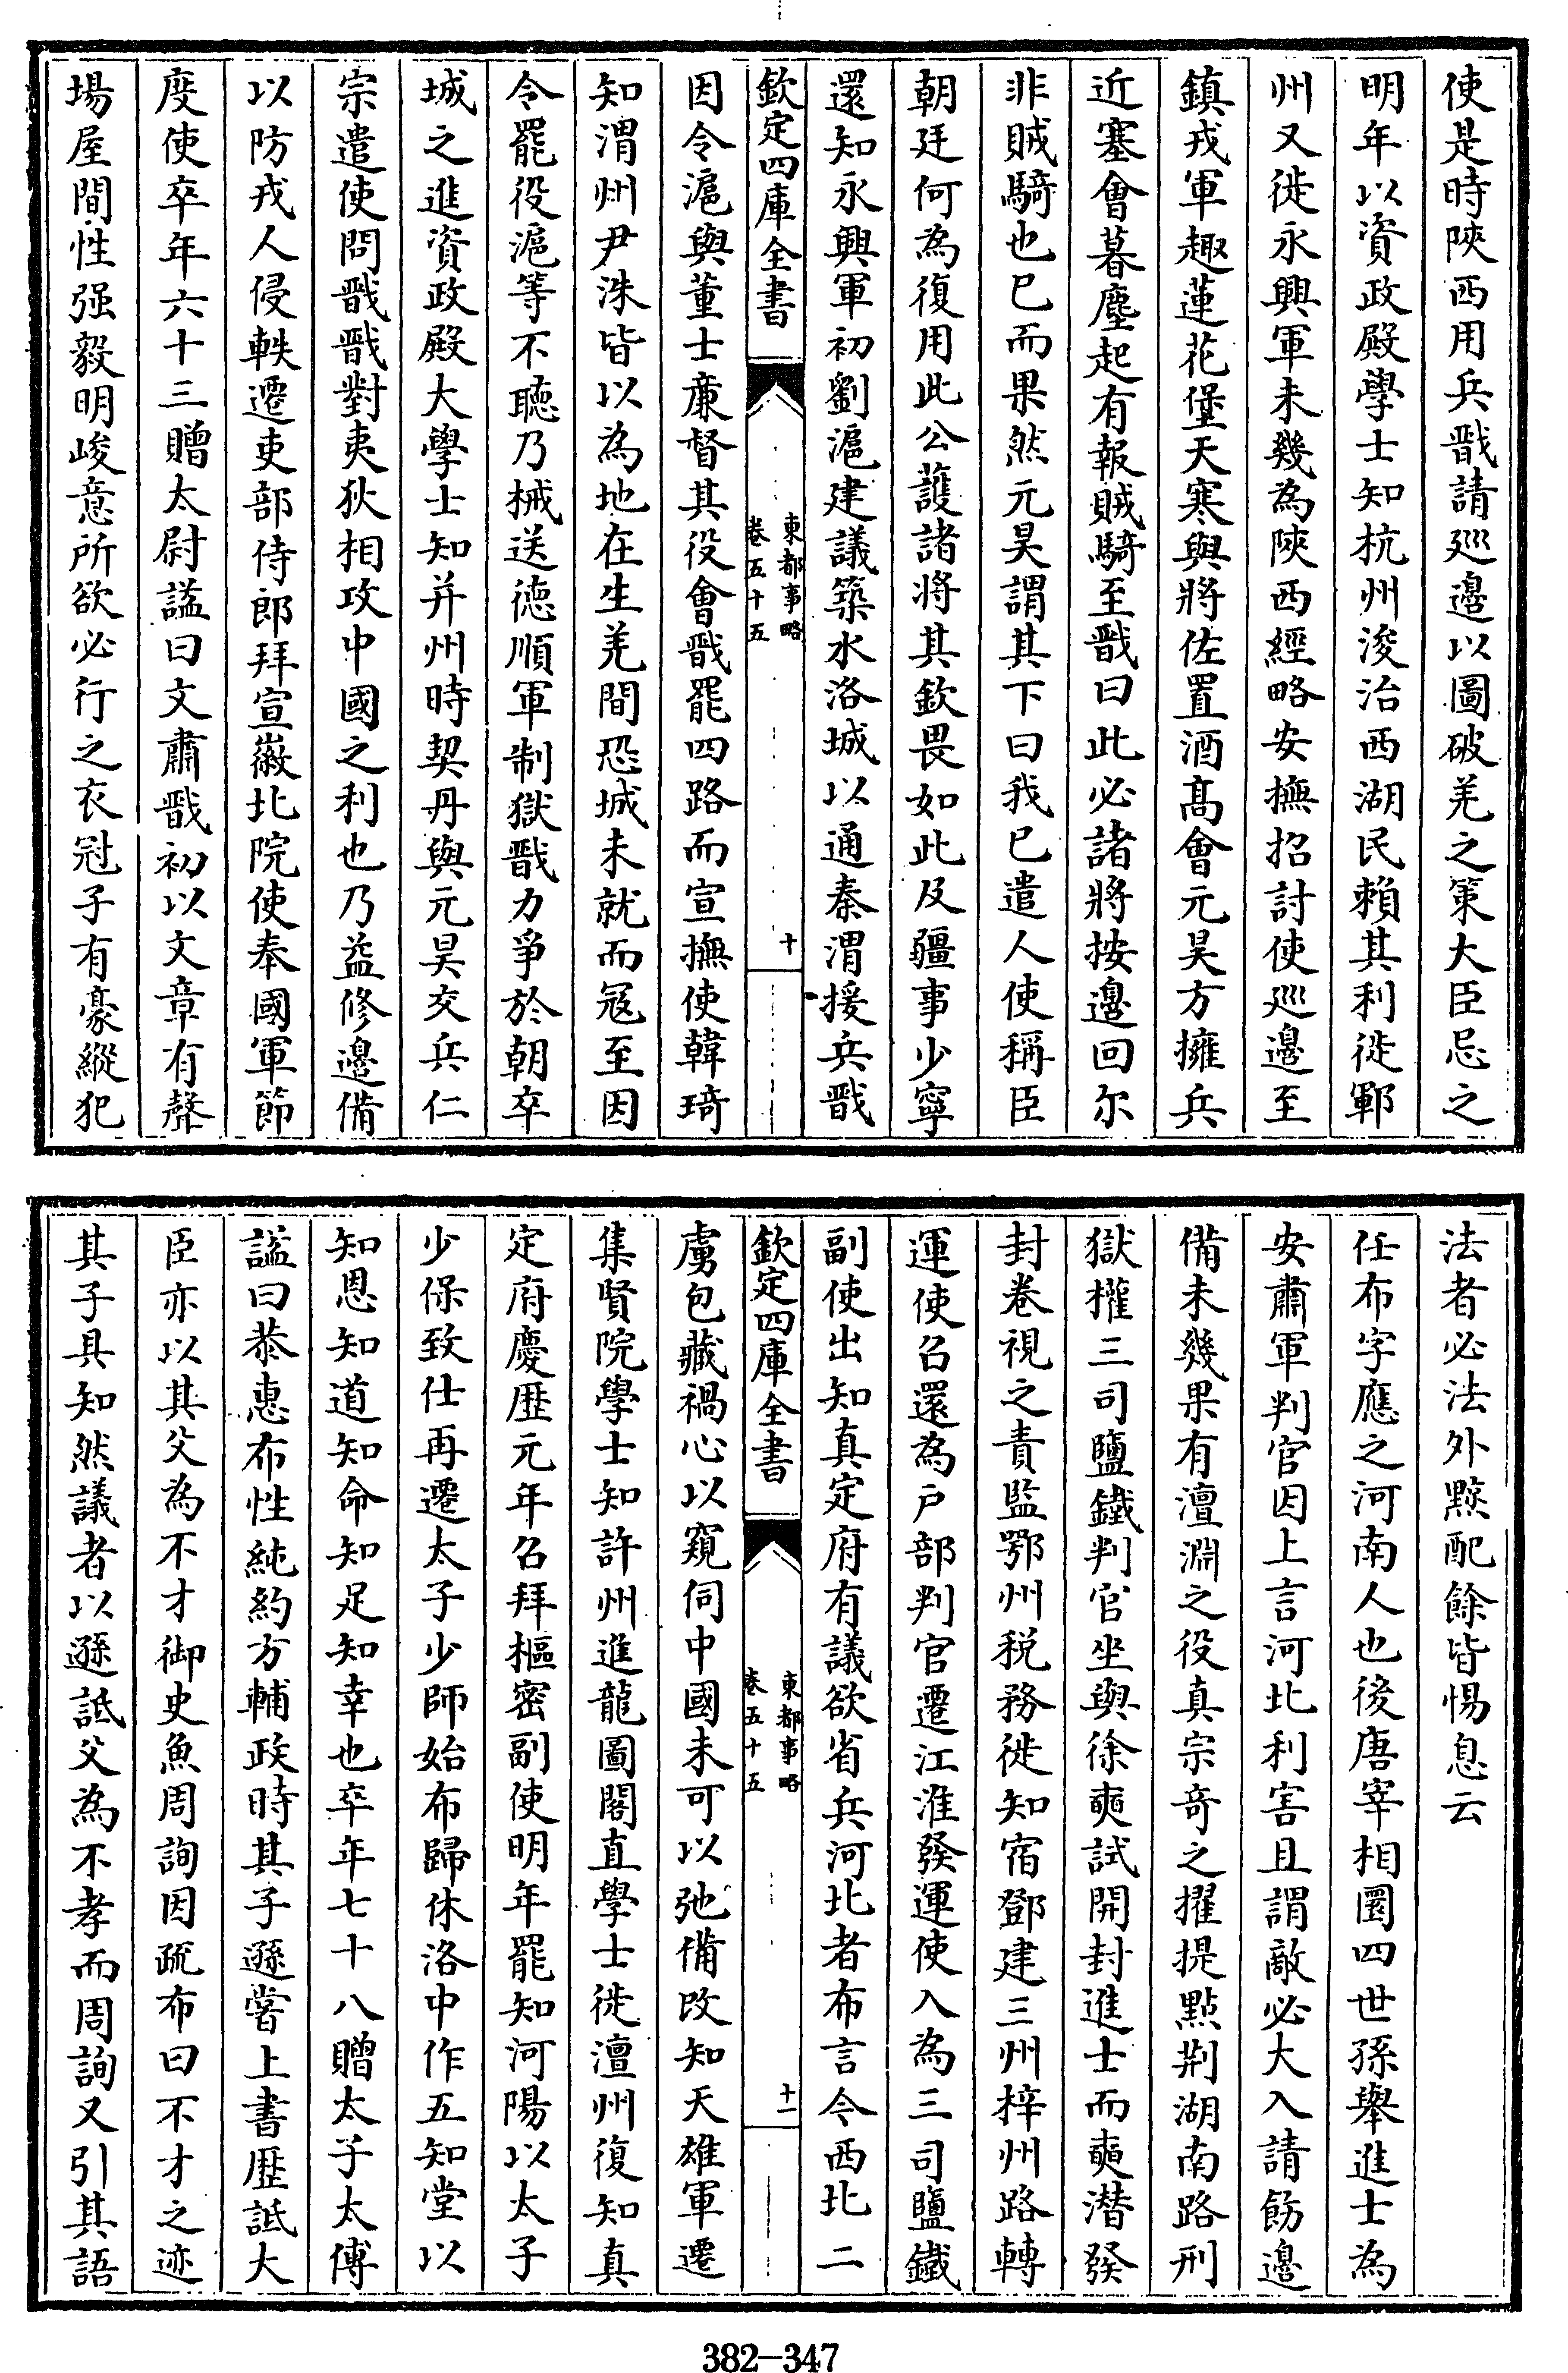 使是時陝西用兵戩請廵邊以圖破羌之策大臣忌之
明年以資政殿學士知杭州浚治西湖民賴其利徙鄆
州又徙永興軍未幾為陝西經略安撫招討使廵邊至
鎮戎軍趣蓮花堡天寒與將佐置酒髙會元昊方擁兵
近塞會暮塵起有報賊騎至戩曰此必諸將按邊回尔
非賊騎也已而果然元昊謂其下曰我已遣人使稱臣
朝廷何為復用此公䕶諸將其欽畏如此及疆事少寧
還知永興軍初劉滬建議築水洛城以通秦渭援兵戩
欽定四庫全書
東都事略
卷五十五
十
因令滬與董士廉督其役會戩罷四路而宣撫使韓琦
知渭州尹洙皆以為地在生羌間恐城未就而冦至因
令罷役滬等不聴乃械送徳順軍制獄戩力爭於朝卒
城之進資政殿大學士知并州時契丹與元昊交兵仁
宗遣使問戩戩對夷狄相攻中國之利也乃益修邊備
以防戎人侵軼遷吏部侍郎拜宣徽北院使奉國軍節
度使卒年六十三贈太尉諡曰文肅戩初以文章有聲
場屋間性强毅明峻意所欲必行之衣冠子有豪縱犯
法者必法外黥配餘皆惕息云
任布字應之河南人也後唐宰相圜四世孫舉進士為
安肅軍判官因上言河北利害且謂敵必大入請飭邊
備未幾果有澶淵之役真宗竒之擢提點荆湖南路刑
獄權三司鹽鐵判官坐與徐奭試開封進士而奭潛發
封卷視之責監鄂州税務徙知宿鄧建三州梓州路轉
運使召還為户部判官遷江淮發運使入為三司鹽鐵
副使出知真定府有議欲省兵河北者布言今西北二
欽定四庫全書
東都事略
卷五十五
十一
虜包藏禍心以窺伺中國未可以弛備改知天雄軍遷
集賢院學士知許州進龍圖閣直學士徙澶州復知真
定府慶歴元年召拜樞密副使明年罷知河陽以太子
少保致仕再遷太子少師始布歸休洛中作五知堂以
知恩知道知命知足知幸也卒年七十八贈太子太傅
諡曰恭惠布性純約方輔政時其子遜嘗上書歴詆大
臣亦以其父為不才御史魚周詢因疏布曰不才之迹
其子具知然議者以遜詆父為不孝而周詢又引其語
382-347